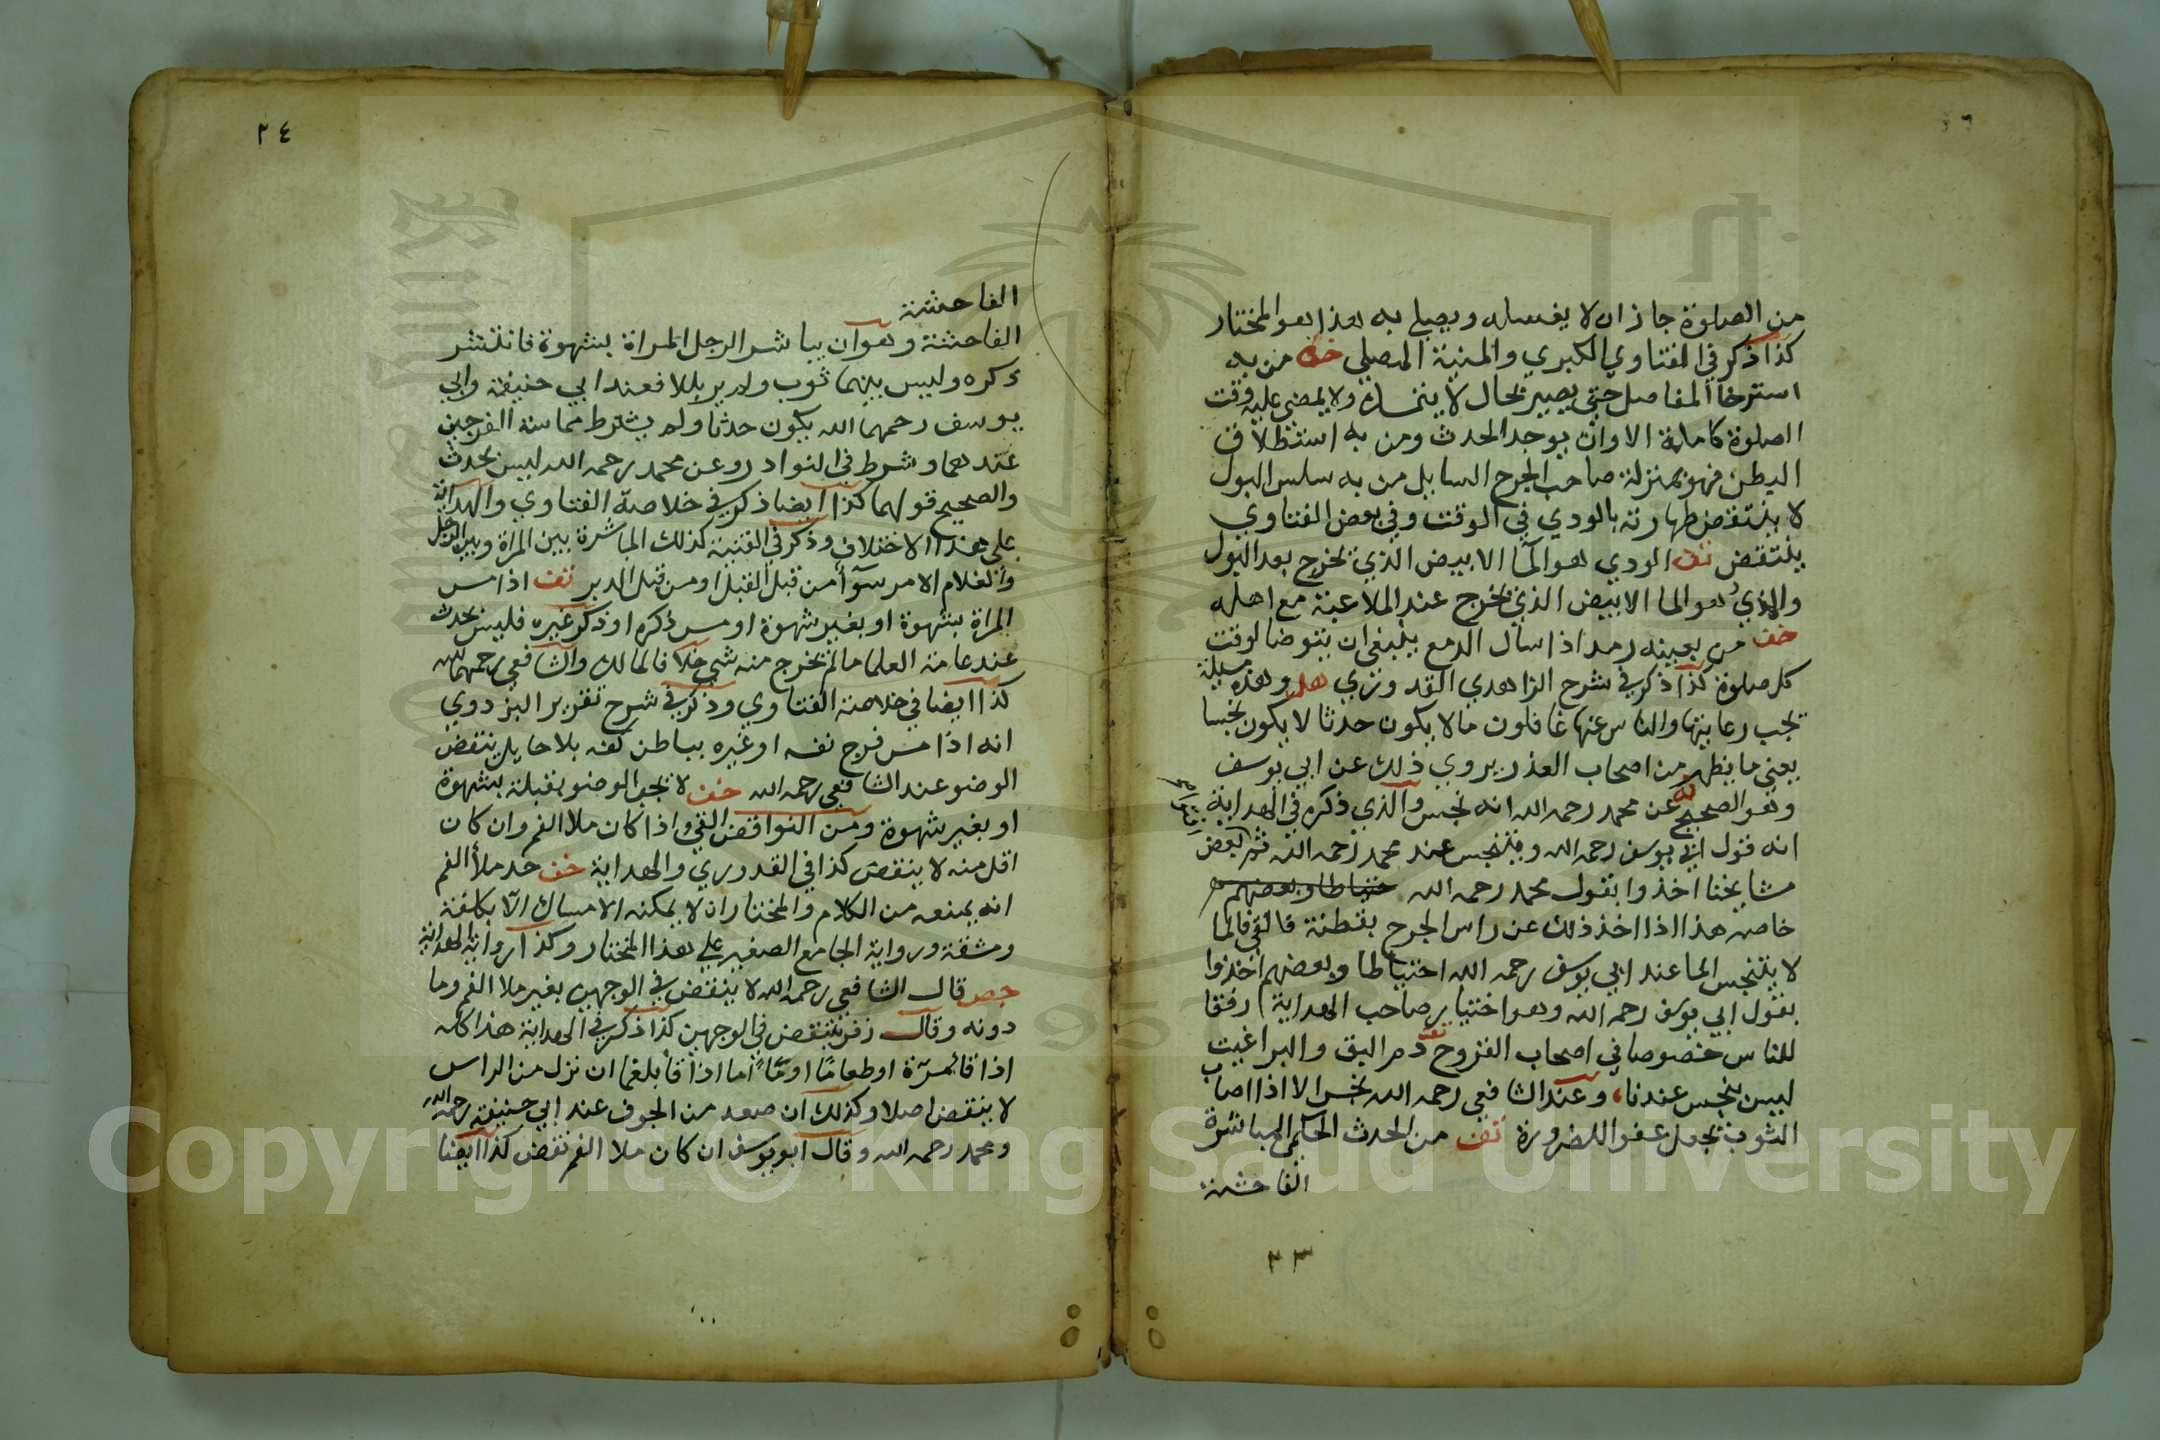 من الصلوة جاز ان لا يغسله ويصلي به هذا هو المختار
كذا ذكر في الفتاوي الكبري والمنية المصلي خف من به
استرخا المفاصل حتي يصير بحال لا ولا يمضي عليه وقت
الصلوة كاملة الا وان يوجد الحدث ومن به استطلاق
البطن فهو بمنزلة صاحب الجرح السايل من به سلس البول
لا ينتقض طهارته بالودي في الوقت وفي بعض الفتاوي
ينتقض تف الودي هو الما الابيض الذي يخرج بعد البول
والمذي هو الما الابيض الذي يخرج عند الملاعبة مع اهله
خف من بعينه رمد اذا سال الدمع ينبغي ان يتوضا لوقت
كل صلوة كذا ذكر في شرح الزاهدي القدوري هد وهذه مسيلة
يجب رعايتها والناس عنها غافلون ما لا يكون حدثا لا يكون نجسا
يعني ما يظهر من اصحاب العذر يروي ذلك عن ابي يوسف
وهو الصحيح عن محمد رحمه الله انه نجس والذي ذكره في الهداية
انه قول ابي يوسف رحمه الله ويتنجس عند محمد رحمه الله ثم بعض
مشايخنا اخذوا بقول محمد رحمه الله احتياطا وبعضهم
خاصه هذا اذا اخذ ذلك عن راس الجرح بقطنة فالقي في الما
لا يتنجس الما عند ابي يوسف رحمه الله احتياطا وبعضهم اخذوا
بقول ابي يوسف رحمه الله وهو اختيار صاحب الهداية رفقا
للناس خصوصا في اصحاب القروح تف دم البق والبراغيث
ليس بنجس عندنا، وعند الشافعي رحمه الله نجس الا اذا اصاب
الثوب يجعل عفوا للضرورة تف من الحدث الحكمي المباشرة
الفاحشة
٢٣
٢٤
الفاحشة
الفاحشة وهو ان يباشر الرجل المراة بشهوة فانتشر
ذكره وليس بينهما ثوب ولم ير بللا فعند ابي حنيفة وابي
يوسف رحمهما الله يكون حدثا ولم يشترط مماسة الفرجين
عندهما وشرط في النوادر وعن محمد رحمه الله ليس بحدث
والصحيح قولهما كذا ايضا ذكر في خلاصة الفتاوي والهداية
علي هذا الاختلاف وذكر في القنية كذلك المباشرة بين المراة وبين الرجل
والغلام الامر سوآ من قبل القبل او من قبل الدبر تف اذا مس
المراة بشهوة او بغير شهوة او مس ذكره او ذكر غيره فليس بحدث
عند عامة العلما ما لم يخرج منه شي خلافا لمالك والشافعي رحمهما الله
كذا ايضا في خلاصة الفتاوي وذكر في شرح تقرير البزدوي
انه اذا مس فرج نفسه او غيره بباطن كفه بلا حايل ينتقض
الوضو عند الشافعي رحمه الله خف لا يجب الوضو بقبلة بشهوة
او بغير شهوة ومن النواقض القي واذا كان ملا الفم وان كان
اقل منه لا ينتقض كذا في القدوري والهداية خف حد ملأ الفم
انه يمنعه من الكلام والمختار ان لا يمكنه الامساك الا بكلفة
ومشقة ورواية الجامع الصغير علي هذا المختار وكذا رواية الهداية
جص قال الشافعي رحمه الله لا ينتقض في الوجهين بغير ملا الفم وما
دونه وقال زفر ينتقض في الوجهين كذا ذكر في الهداية هذا كله
اذا قا مرّة او طعامًا او ماءً اما اذا قا بلغما ان نزل من الراس
لا ينتقض اصلا وكذلك ان صعد من الجوف عند ابي حنيفة رحمه الله
ومحمد رحمه الله وقال ابو يوسف ان كان ملا الفم نقض كذا ايضا
Copyright © King Saud University